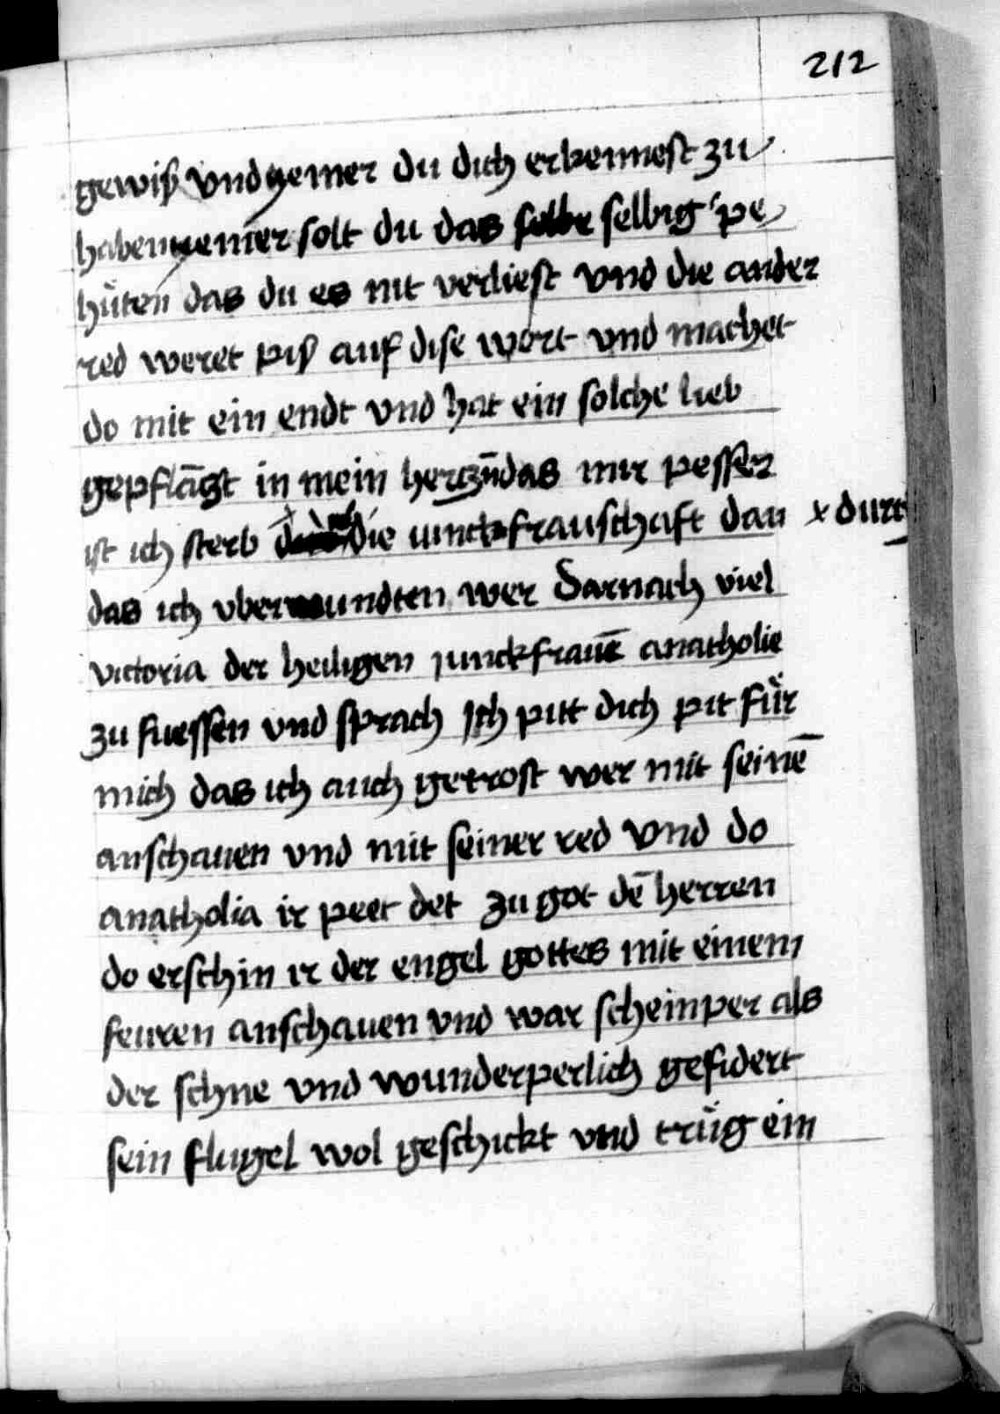 212
gewiß vnd yemer du dich erkennest zu
haben yemer solt du das selbig pe
hüten das du es nit verliest vnd die ander
red weret piß auf dise wort vnd machet
do mit ein endt vnd hat ein solche lieb
gepflāgzt in mein hertz vñ das mir pesser
ist ich sterb die iunckfrauschaft dan x durt
das ich vberwundten wer Darnach viel
victoria der heiligen junckfrauē anatholie
zu fuessen vnd sprach Ich pitt dich pit für
mich das ich auch getrost wer mit seinē
anschauen vnd mit seiner red Vnd do
anatholia ir peet det zu got dē herren
do erschin ir der engel gottes mit einem
feuren anschauen vnd war scheinper als
der schne vnd wunderperlich gefidert
sein flugel wol geschickt vnd trüg ein